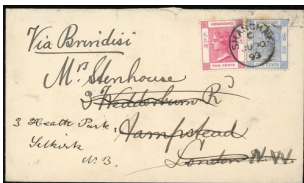 Via Brindisi
HONG KONG
SHANGHAI
C
JU 10
93
Mrs Stenhouse
3 Wedderburn R
3 Heath Park,
Hampstead
Selkirk
London N.W.
N.B.